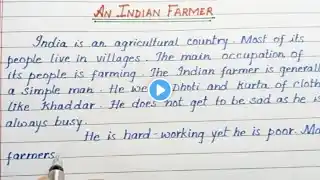 AN INDIAN FARMER
India is an agricultural country. Most of its
people live in villages. The main occupation of
its people is farming. The Indian farmer is generall
a simple man. He we Dhoti and Kurta of cloth
like Khaddar. He does not get to be sad as he is
always busy.
He is hard-working yet he is poor. Mo
farmers